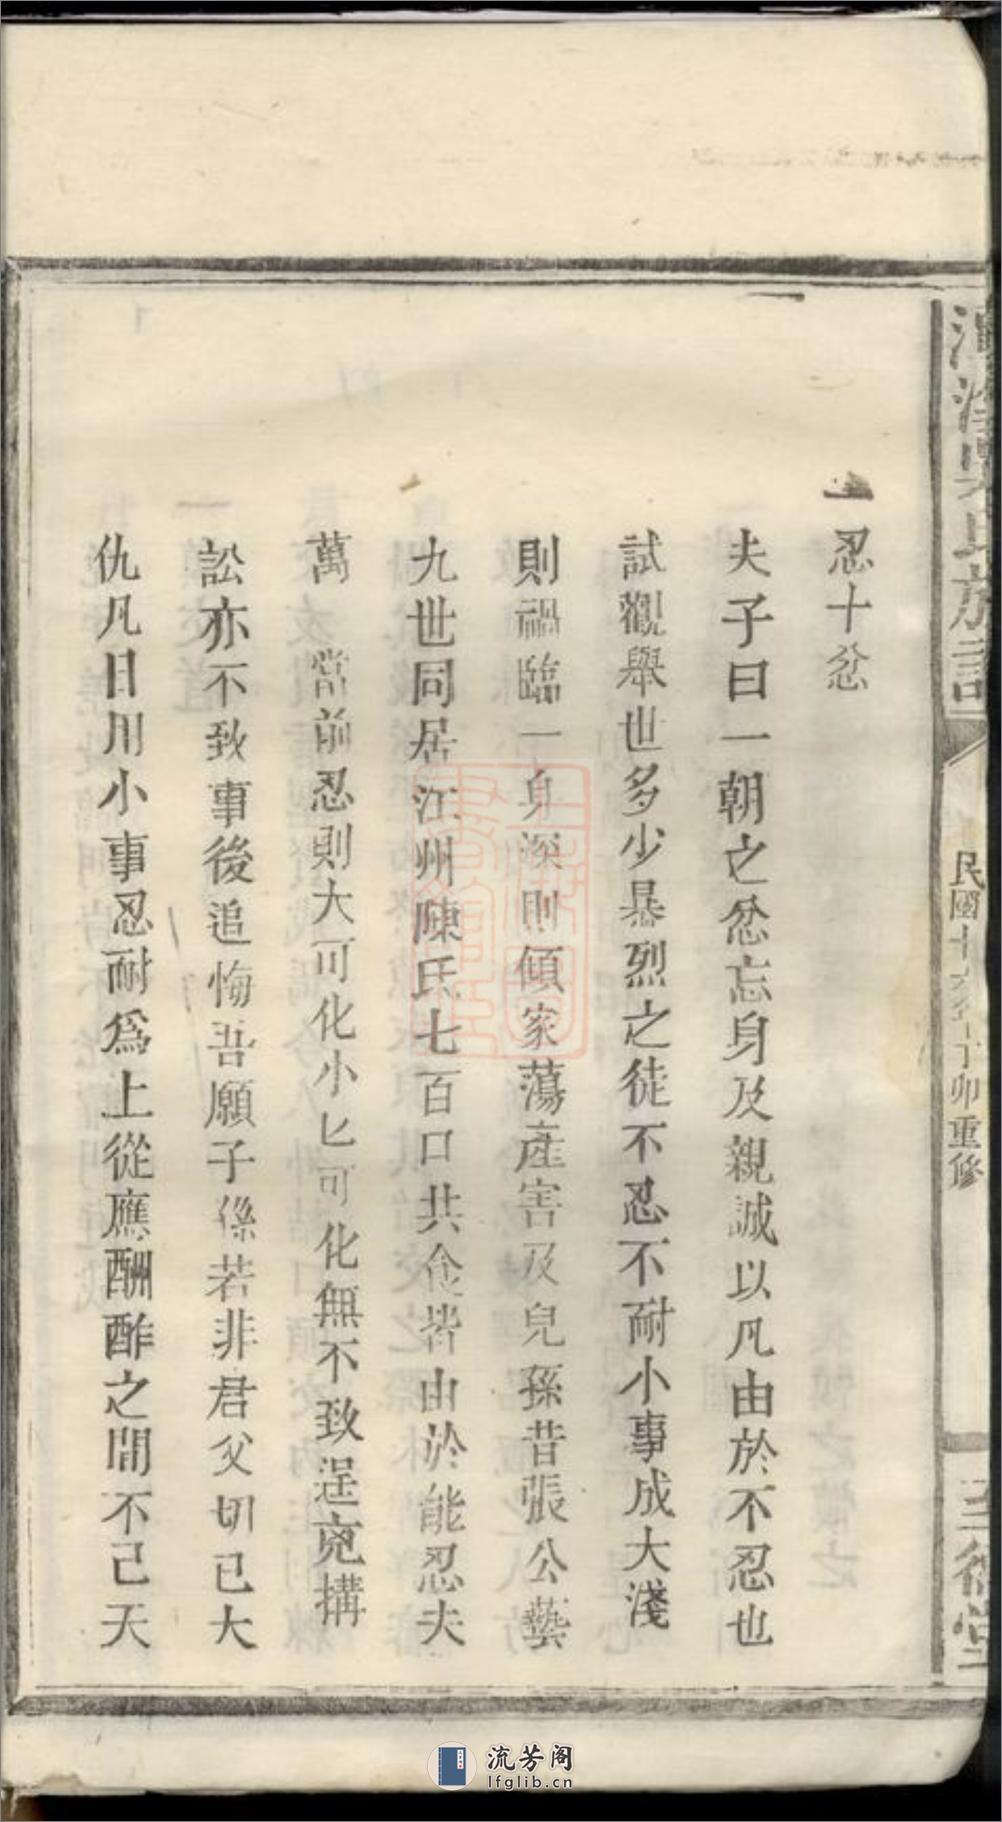 一忍十忿
夫子曰一朝之忿忘身及親誠以凡由於不忍也
試觀舉世多少暴烈之徒不忍不耐小事成大淺
則禍臨一身深則傾家蕩產害及兒孫昔張公藝
九世同居江州陳氏七百口共食皆由於能忍夫
萬 當前忍則大可化小匕可化無不致逞兇搆
訟亦不致事後追悔吾願子孫若非君父切己大
仇凡日用小事忍耐爲上從應酬酢之間不己天
氏族譜
民國十六年丁卯重修
三德堂
上海圖書館藏
流芳阁
lfglib.cn